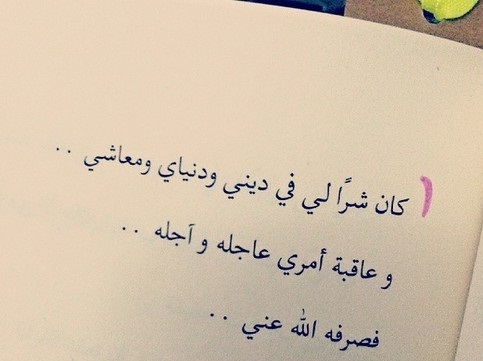 كان شرًا لي في ديني ودنياي ومعاشي ..
و عاقبة أمري عاجله و آجله ..
فصرفه الله عني ..